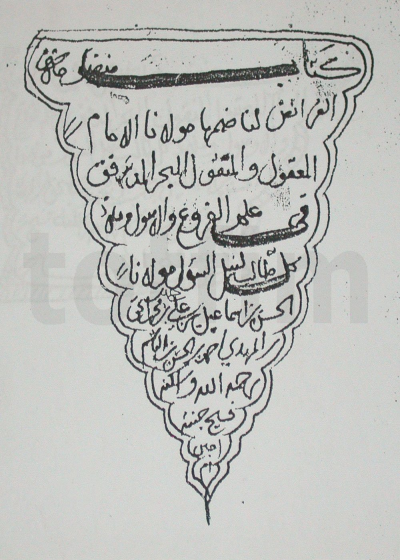 كتاب
الفرائض لناضمها مولانا الامام
المعقول والمنقول البحر المدفق
في علم الفروع والاصول وملاذ
كل طالب لنيل السؤل مولانا
الحسن بن اسماعيل بن علي بن محمد
المهدي احمد بن الحسن بن القاسم
رحمه الله واسكنه
فسيح جنته
امين